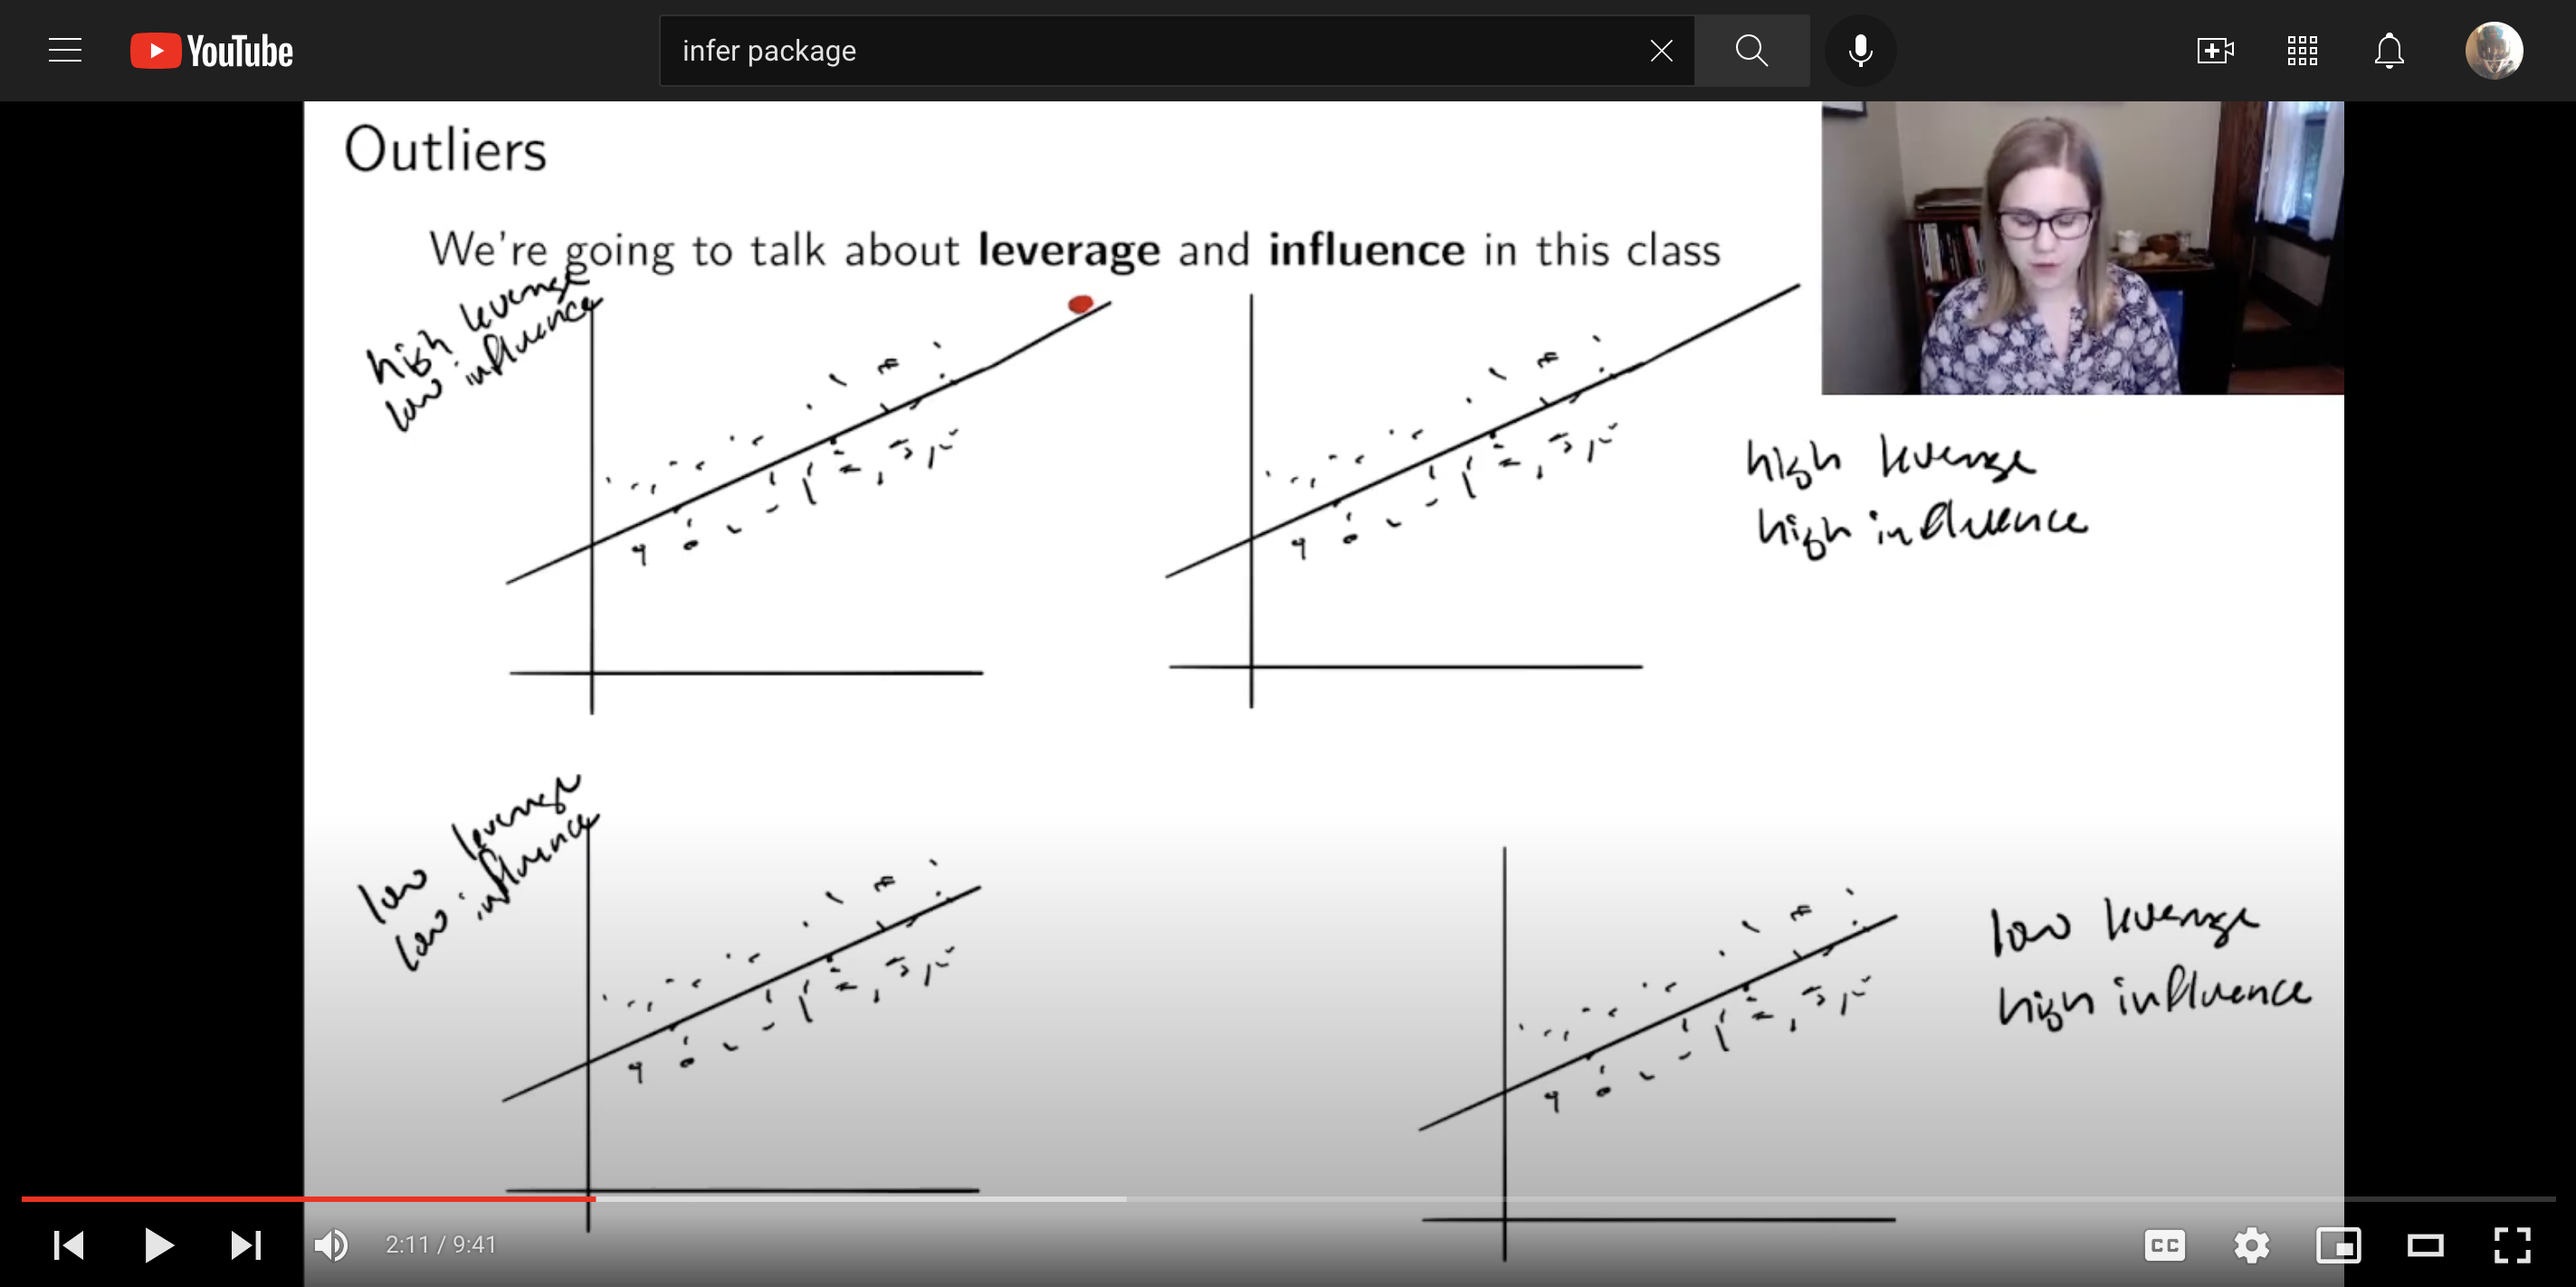 YouTube
infer package
Outliers
We're going to talk about leverage and influence in this class
high leverage
low influence
high leverage
high influence
low leverage
low influence
low leverage
high influence
2:11 / 9:41
CC